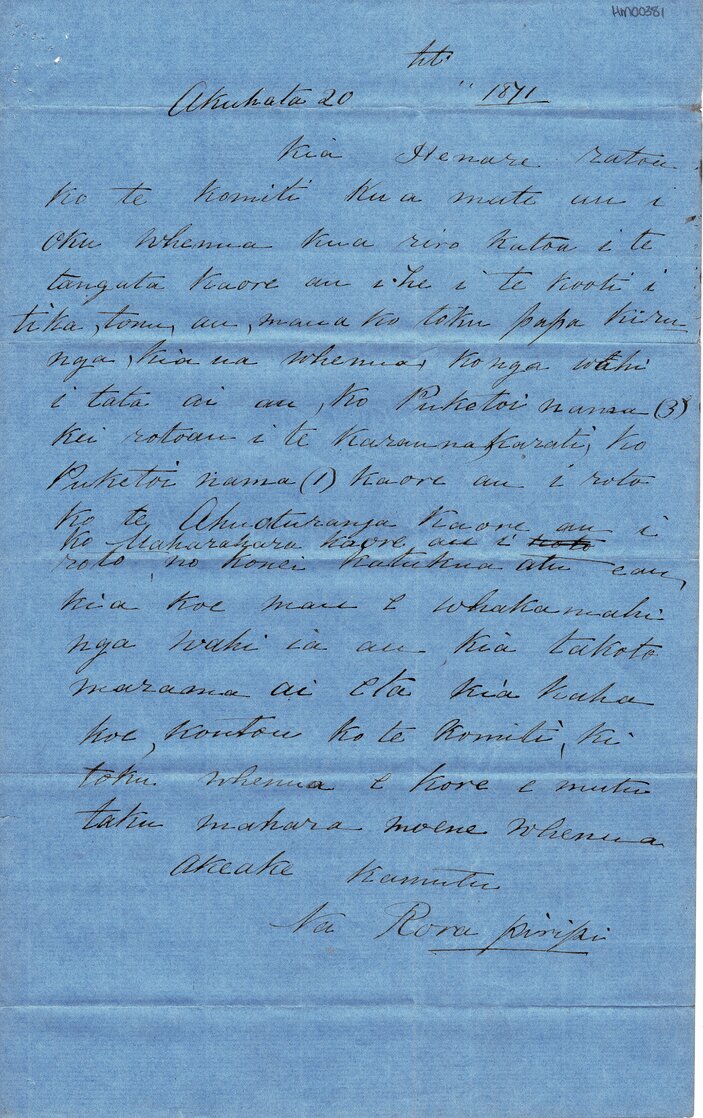 HM00381
Akuhata 20 1871
Kia Henare ratou
ko te Komiti kua mutu au i
oku whenua kua riro katoa i te
tangata kaore au i he i te kooti i
tika, tonu, au, mana ko toku papa kiru
nga, kia ua whenua, ko nga wahi
i tata ai au, ko Puketoi nama (3)
kei rotoau i te Karauna Karati, ko
Puketoi nama (1) kaore au i roto
ko te Ahuoturanga kaore au i
ko Maharahara kaore au i roto
roto, no konei katukua atu eau,
kia koe mau e whakamahi
nga wahi ia au kia takoto
marama ai eta kia kaha
koe, koutou ko te Komiti, ki
toku whenua e kore e mutu
taku mahara moene whenua
akeake kamutu
Na Rora piripi